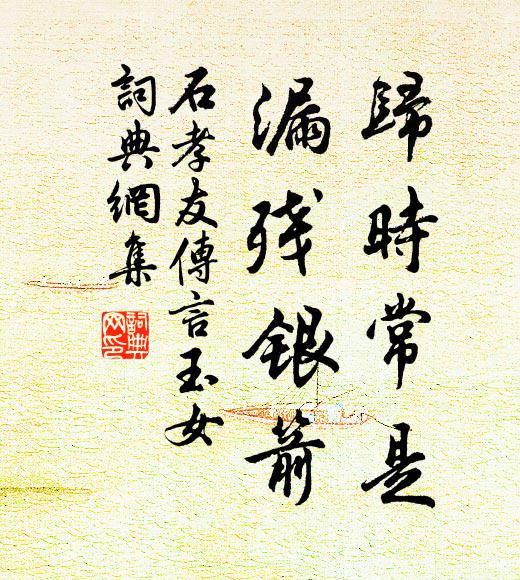 歸時常是
漏残銀箭
石孝友傳言玉女
詞典網集
詞典
网印